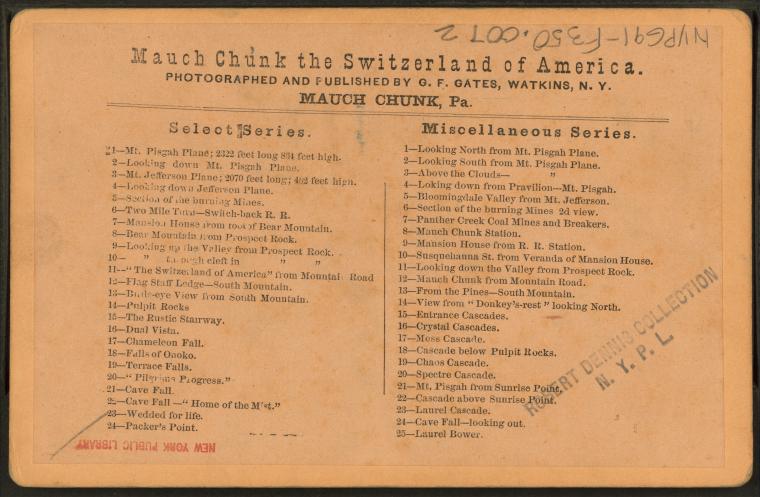 NYPG91-F350.001 2
Mauch Chunk the Switzerland of America.
PHOTOGRAPHED AND PUBLISHED BY G. F. GATES, WATKINS, N. Y.
MAUCH CHUNK, Pa.
Select Series.
1—Mt. Pisgah Plane; 2322 feet long 664 feet high.
2—Looking down Mt. Pisgah Plane.
3—Mt. Jefferson Plane; 2070 feet long; 462 feet high.
4—Looking down Jefferson Plane.
5—Section of the burning Mines.
6—Two Mile Turn—Switch-back R. R.
7—Mansion House from foot of Bear Mountain.
8—Bear Mountain from Prospect Rock.
9—Looking up the Valley from Prospect Rock.
10— " through cleft in " "
11—"The Switzerland of America" from Mountain Road
12—Flag Staff Ledge—South Mountain.
13—Birds-eye View from South Mountain.
14—Pulpit Rocks
15—The Rustic Stairway.
16—Dual Vista.
17—Chameleon Fall.
18—Falls of Onoko.
19—Terrace Falls.
20—"Pilgrims Progress."
21—Cave Fall.
22—Cave Fall—"Home of the Mist."
23—Wedded for life.
24—Packer's Point.
Miscellaneous Series.
1—Looking North from Mt. Pisgah Plane.
2—Looking South from Mt. Pisgah Plane.
3—Above the Clouds— "
4—Loking down from Pravilion—Mt. Pisgah.
5—Bloomingdale Valley from Mt. Jefferson.
6—Section of the burning Mines 2d view.
7—Panther Creek Coal Mines and Breakers.
8—Mauch Chunk Station.
9—Mansion House from R. R. Station.
10—Susquehanna St. from Veranda of Mansion House.
11—Looking down the Valley from Prospect Rock.
12—Mauch Chunk from Mountain Road.
13—From the Pines—South Mountain.
14—View from "Donkey's-rest" looking North.
15—Entrance Cascades.
16—Crystal Cascades.
17—Moss Cascade.
18—Cascade below Pulpit Rocks.
19—Chaos Cascade.
20—Spectre Cascade.
21—Mt. Pisgah from Sunrise Point.
22—Cascade above Sunrise Point.
23—Laurel Cascade.
24—Cave Fall—looking out.
25—Laurel Bower.
ROBERT DENNIS COLLECTION
N. Y. P. L.
NEW YORK PUBLIC LIBRARY